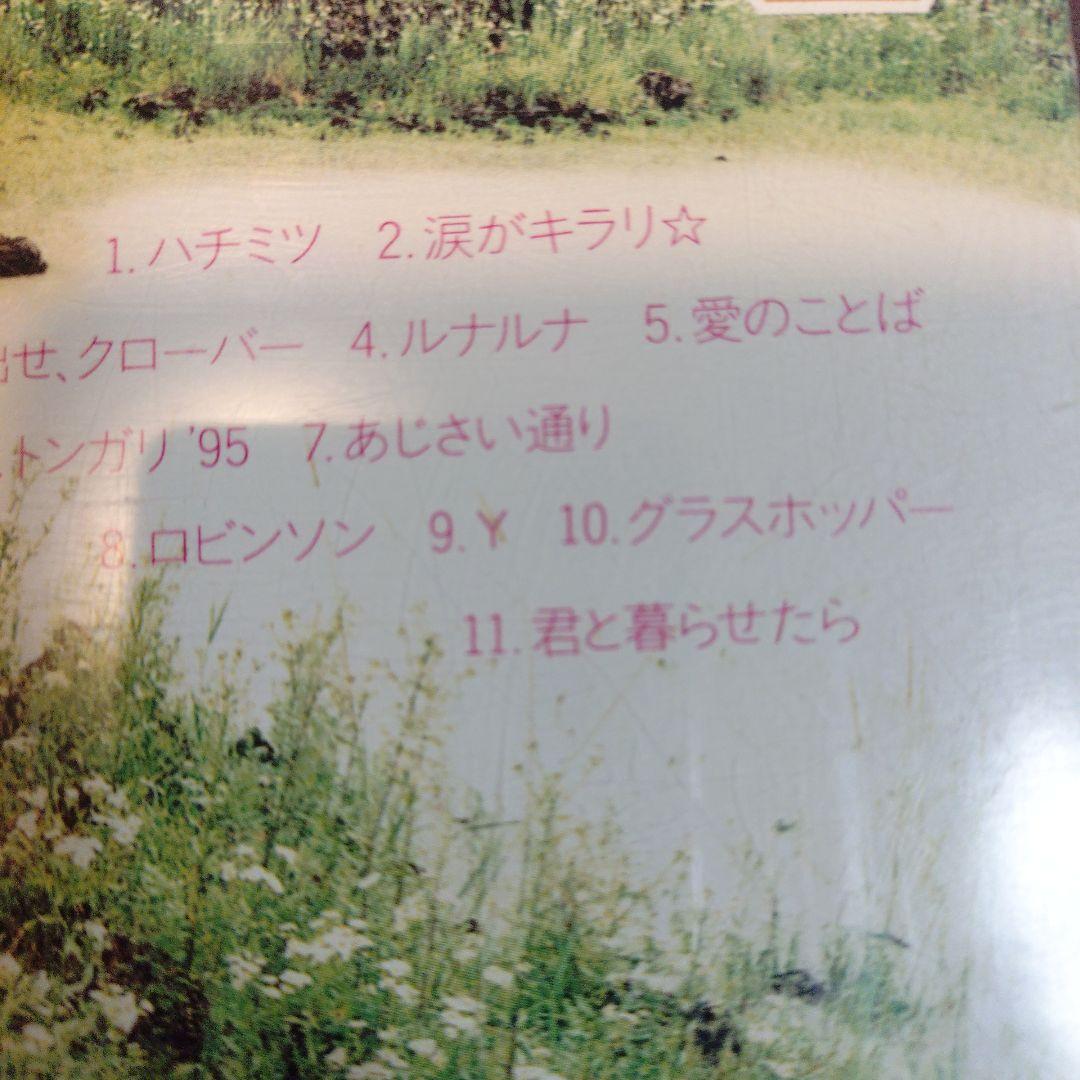 1.ハチミツ 2.涙がキラリ☆
出せ、クローバー 4.ルナルナ 5.愛のことば
.トンガリ'95 7.あじさい通り
8.ロビンソン 9.Y 10.グラスホッパー
11.君と暮らせたら